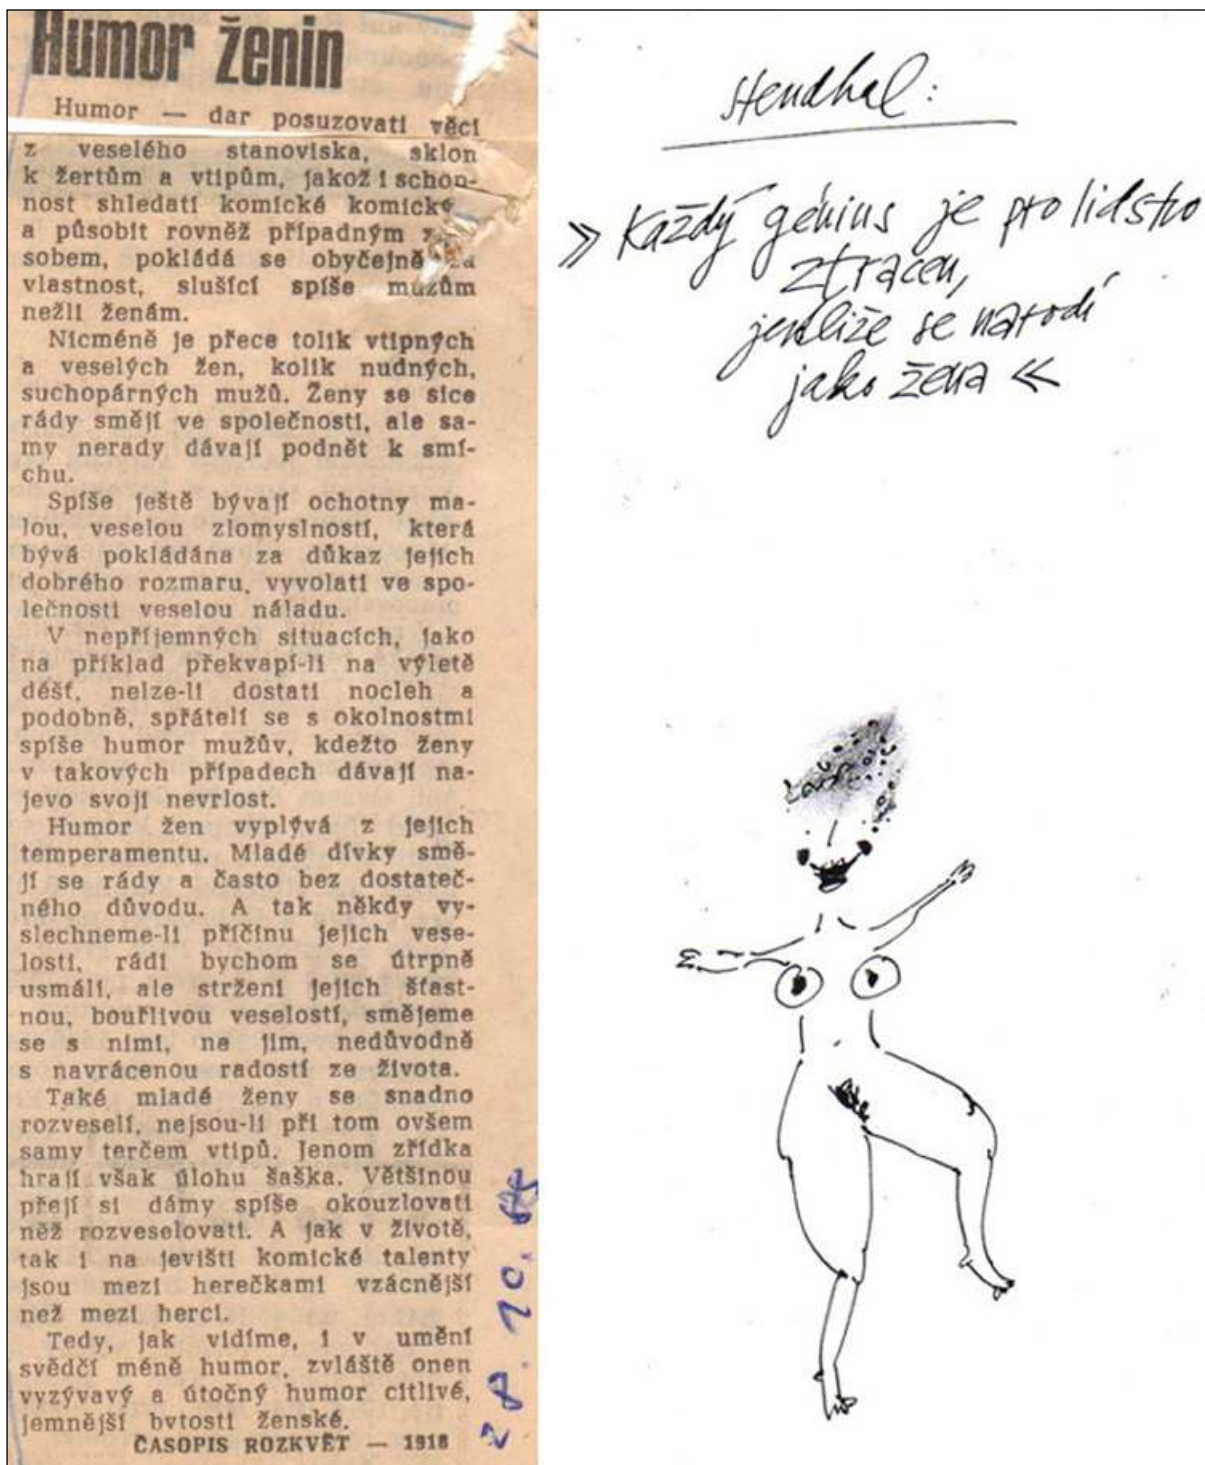 Humor ženin
Humor — dar posuzovati věci
z veselého stanoviska, sklon
k žertům a vtipům, jakož i schop-
nost shledati komické
a působit rovněž případným
sobem, pokládá se obyčejně za
vlastnost, slušící spíše mužům
nežli ženám.
Nicméně je přece tolik vtipných
a veselých žen, kolik nudných,
suchopárných mužů. Ženy se sice
rády smějí ve společnosti, ale sa-
my nerady dávají podnět k smí-
chu.
Spíše ještě bývají ochotny ma-
lou, veselou zlomyslností, která
bývá pokládána za důkaz jejich
dobrého rozmaru, vyvolati ve spo-
lečnosti veselou náladu.
V nepříjemných situacích, jako
na příklad překvapí-li na výletě
déšť, nelze-li dostati nocleh a
podobně, spřátelí se s okolnostmi
spíše humor mužův, kdežto ženy
v takových případech dávají na-
jevo svoji nevrlost.
Humor žen vyplývá z jejich
temperamentu. Mladé dívky smě-
jí se rády a často bez dostateč-
ného důvodu. A tak někdy vy-
slechneme-li příčinu jejich vese-
losti, rádi bychom se útrpně
usmáli, ale strženi jejich šťast-
nou, bouřlivou veselostí, smějeme
se s nimi, ne jim, nedůvodně
s navrácenou radostí ze života.
Také mladé ženy se snadno
rozveselí, nejsou-li při tom ovšem
samy terčem vtipů. Jenom zřídka
hrají však úlohu šaška. Většinou
přejí si dámy spíše okouzlovati
něž rozveselovati. A jak v životě,
tak i na jevišti komické talenty
jsou mezi herečkami vzácnější
než mezi herci.
Tedy, jak vidíme, i v umění
svědčí méně humor, zvláště onen
vyzývavý a útočný humor citlivé,
jemnější bytosti ženské.
ČASOPIS ROZKVĚT — 1918
28. 10.
stendhal:
» Každý génius je pro lidstvo
ztracen,
jestliže se narodí
jako žena «